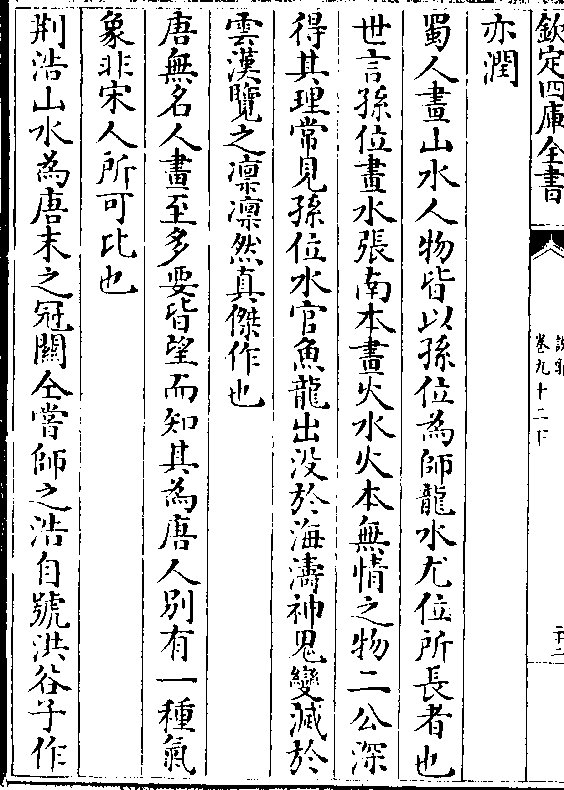 欽定四庫全書
卷九十二下
亦潤
蜀人畫山水人物皆以孫位為師龍水尤位所長者也
世言孫位畫水張南本畫火水火本無情之物二公深
得其理常見孫位水官魚龍出没於海濤神鬼變滅於
雲漢覽之凛凛然真傑作也
唐無名人畫至多要皆望而知其為唐人别有一種氣
象非宋人所可比也
荆浩山水為唐末之冠關仝嘗師之浩自號洪谷子作